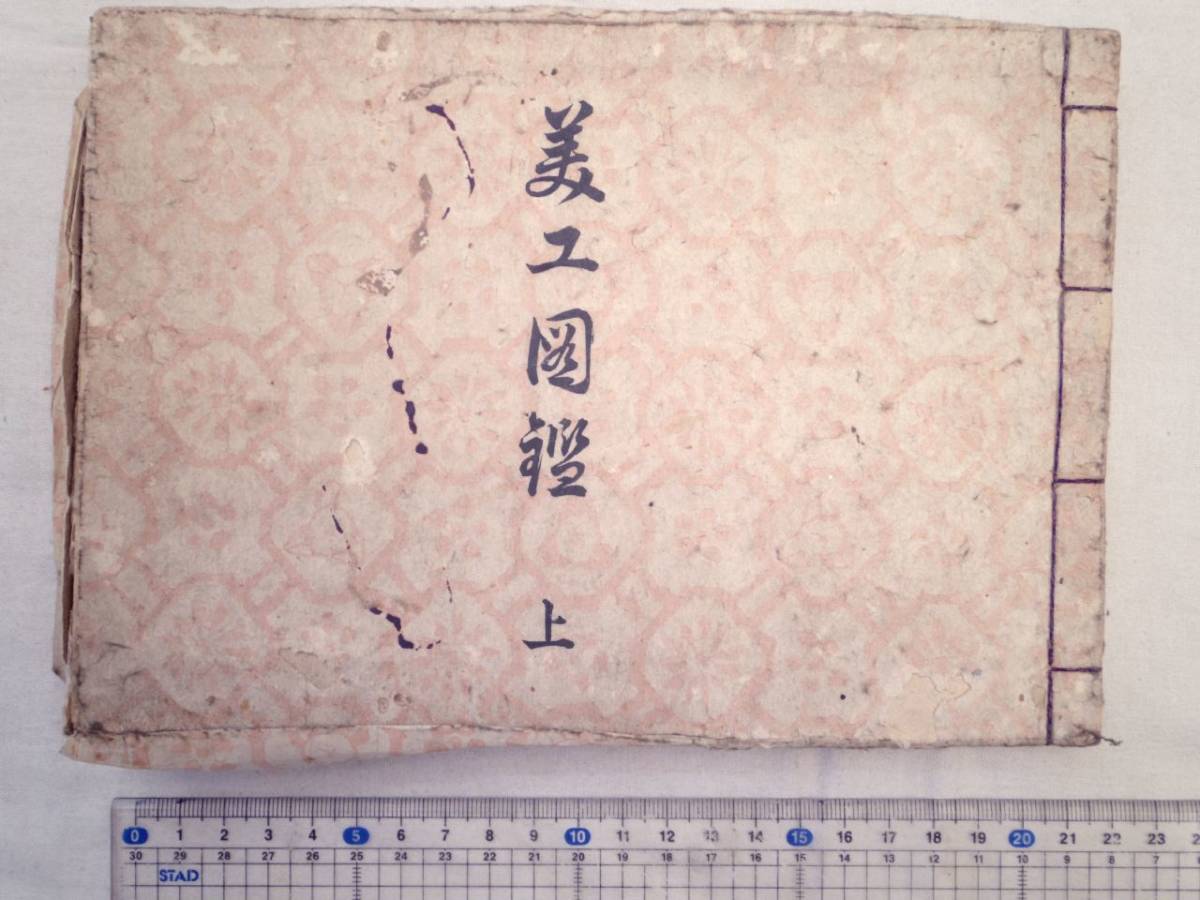 美工図鑑 上
0 1 2 3 4 5 6 7 8 9 10 11 12 13 14 15 16 17 18 19 20 21 22 23
30 29 28 27 26 25 24 23 22 21 20 19 18 17 16 15 14 13 12 11 10 9 8 7 6
STAD